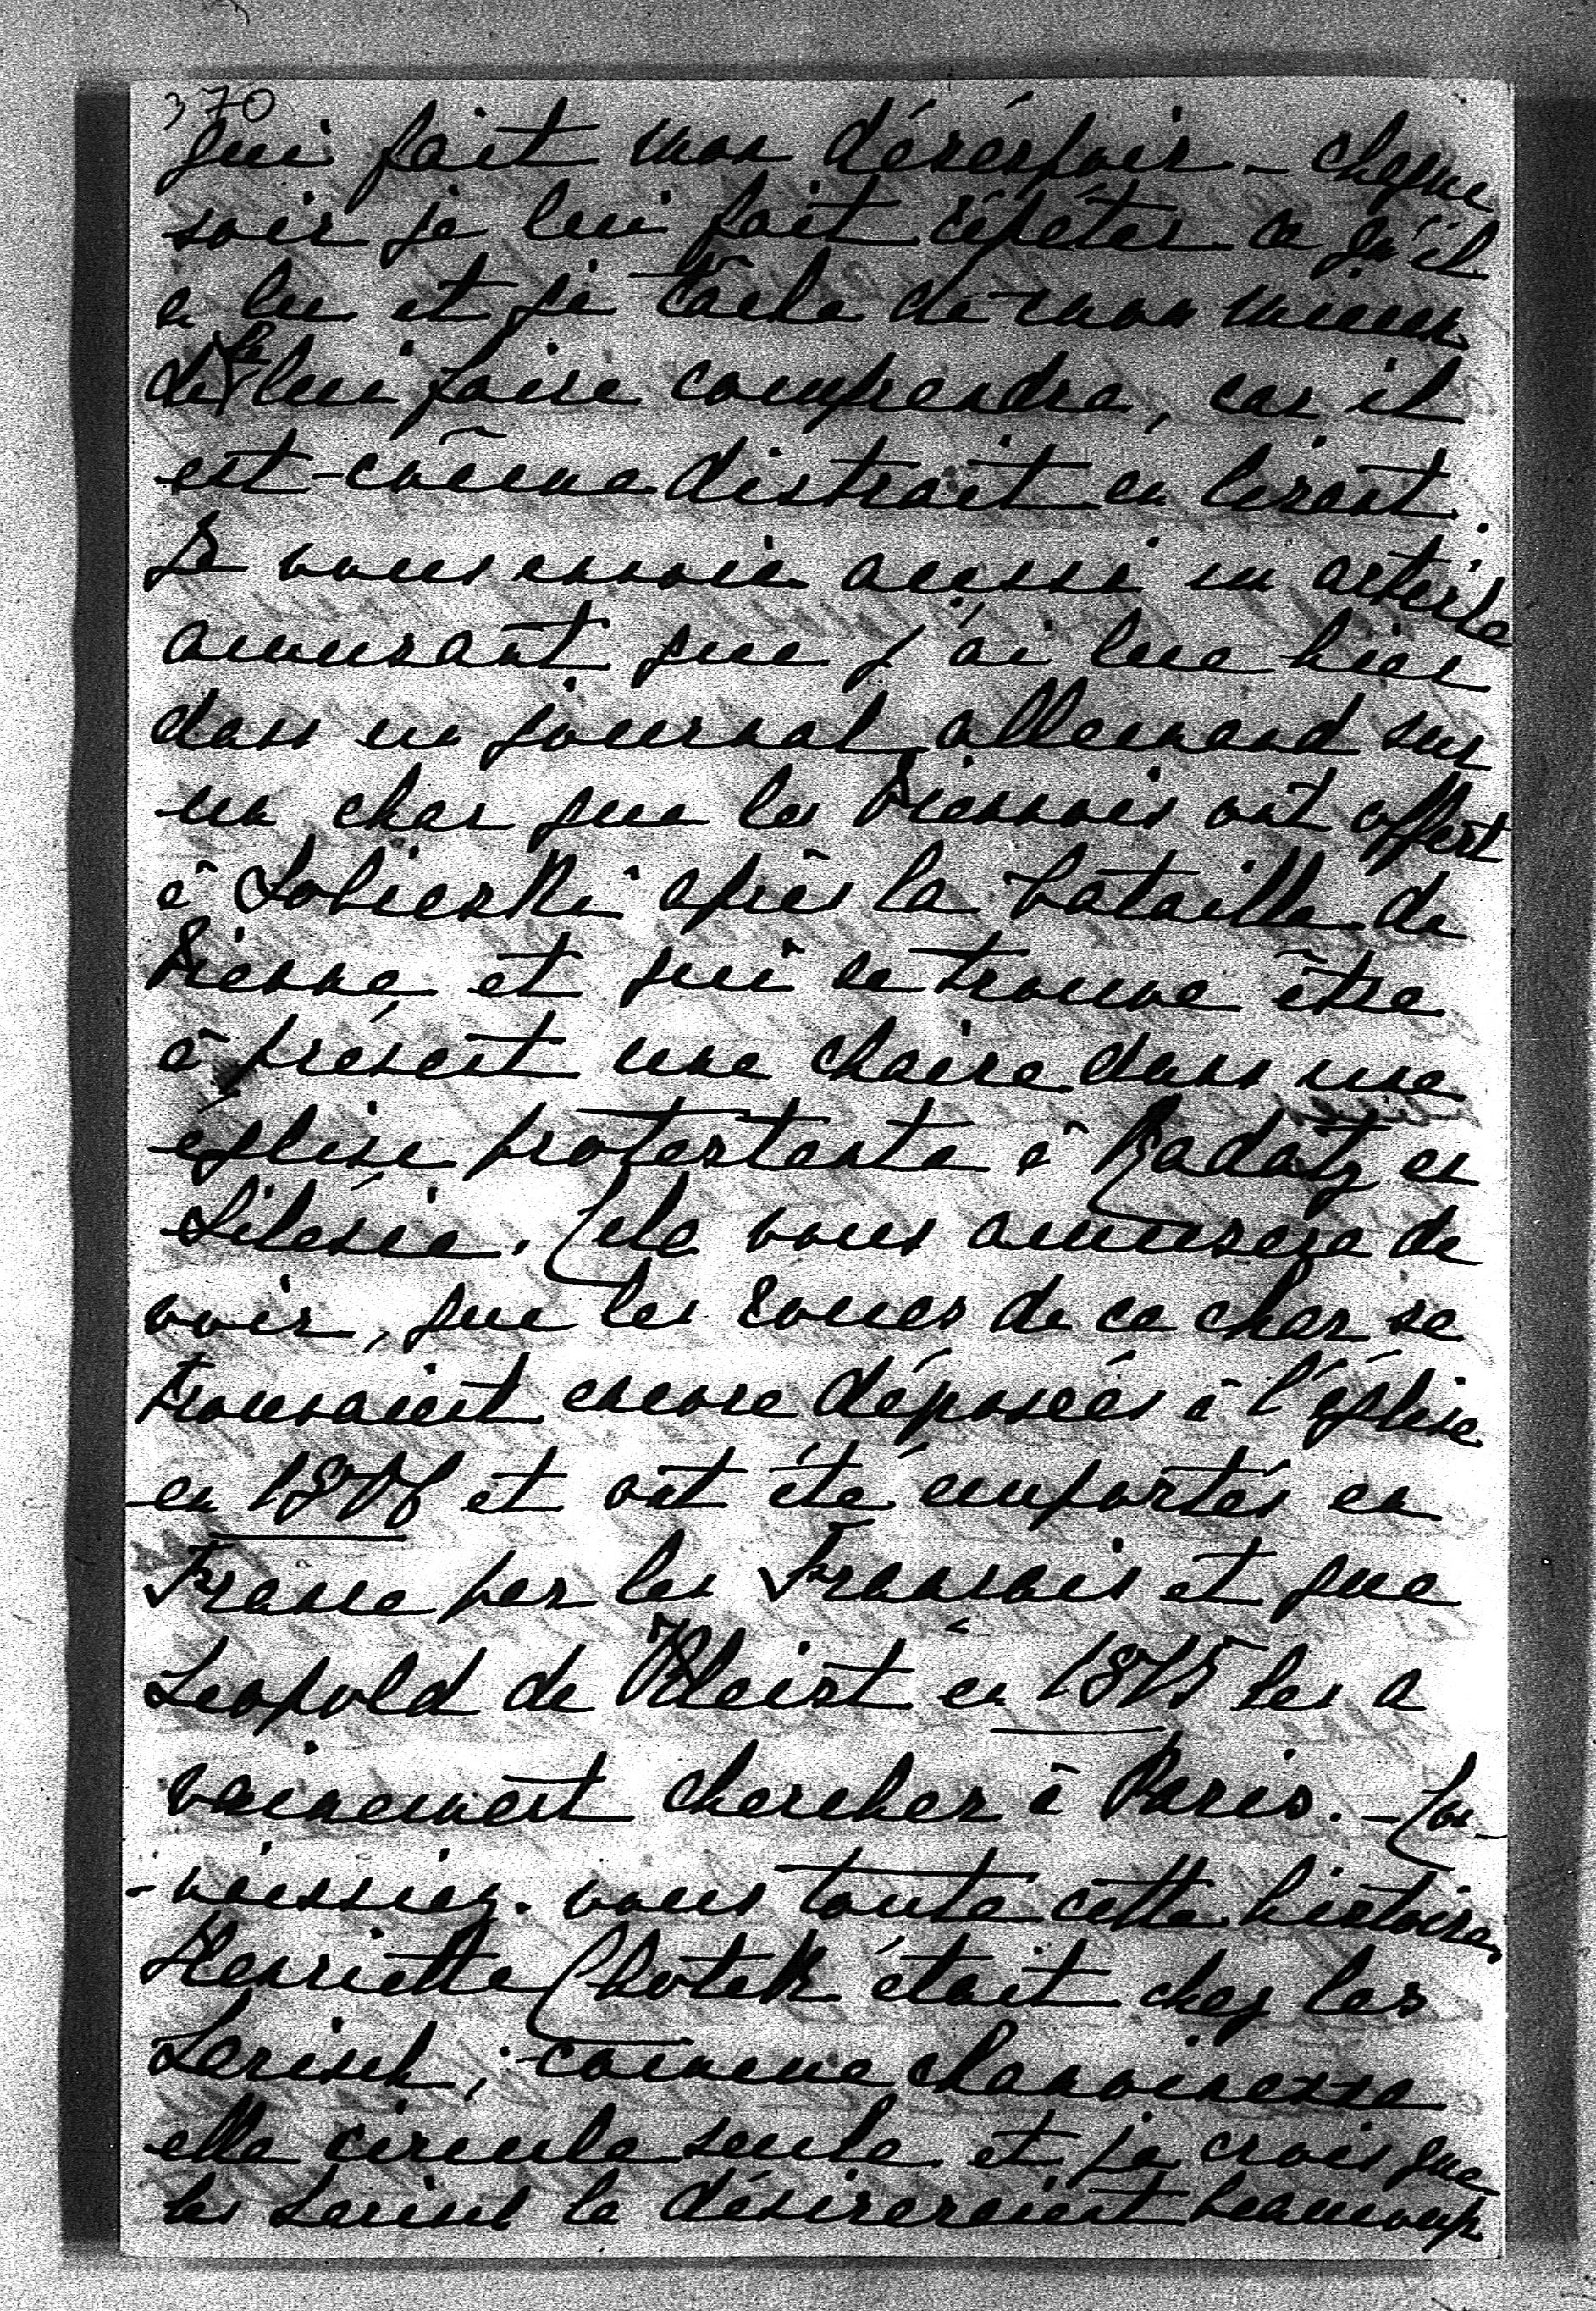 370
qui fait mon désespoir – chaque
soir je lui fait répéter ce qu'il
a lu et je tâche de mon mieux
de le lui faire comprendre, car il
est même distrait en lisant.
Je vous envoie aussi un article
amusant que j'ai lue hier
dans un journal allemand sur
un char que les Viennois ont offert
à Sobieski après la bataille de
Vienne, et qui se trouve être
à présent une chaire dans une
église protestante à Radatz en
Silésie. Cela vous amusera de
voir, que les roues de ce char se
trouvaient encore déposées à l'église
en et ont été emportés en
France par les Français et que
Leopold de Kleist en 1815 les a
vainement chercher à Paris. – Con-
-naissiez-vous toute cette histoire,
Henriette Chotek était chez les
Larisch, comme chanoinesse
elle circule seule et je crois que
les Larisch la désireraient beaucoup